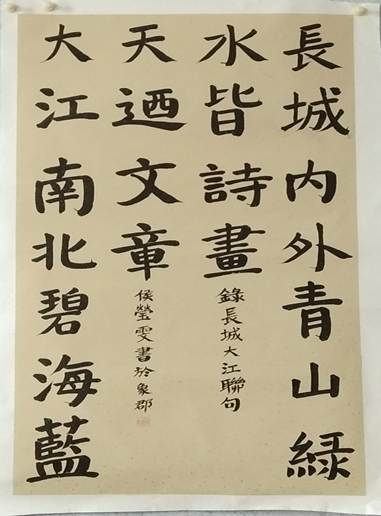 長城内外青山綠
水皆詩畫
大江南北碧海藍
天迺文章
錄長城大江聯句
侯瑩雯書於象郡